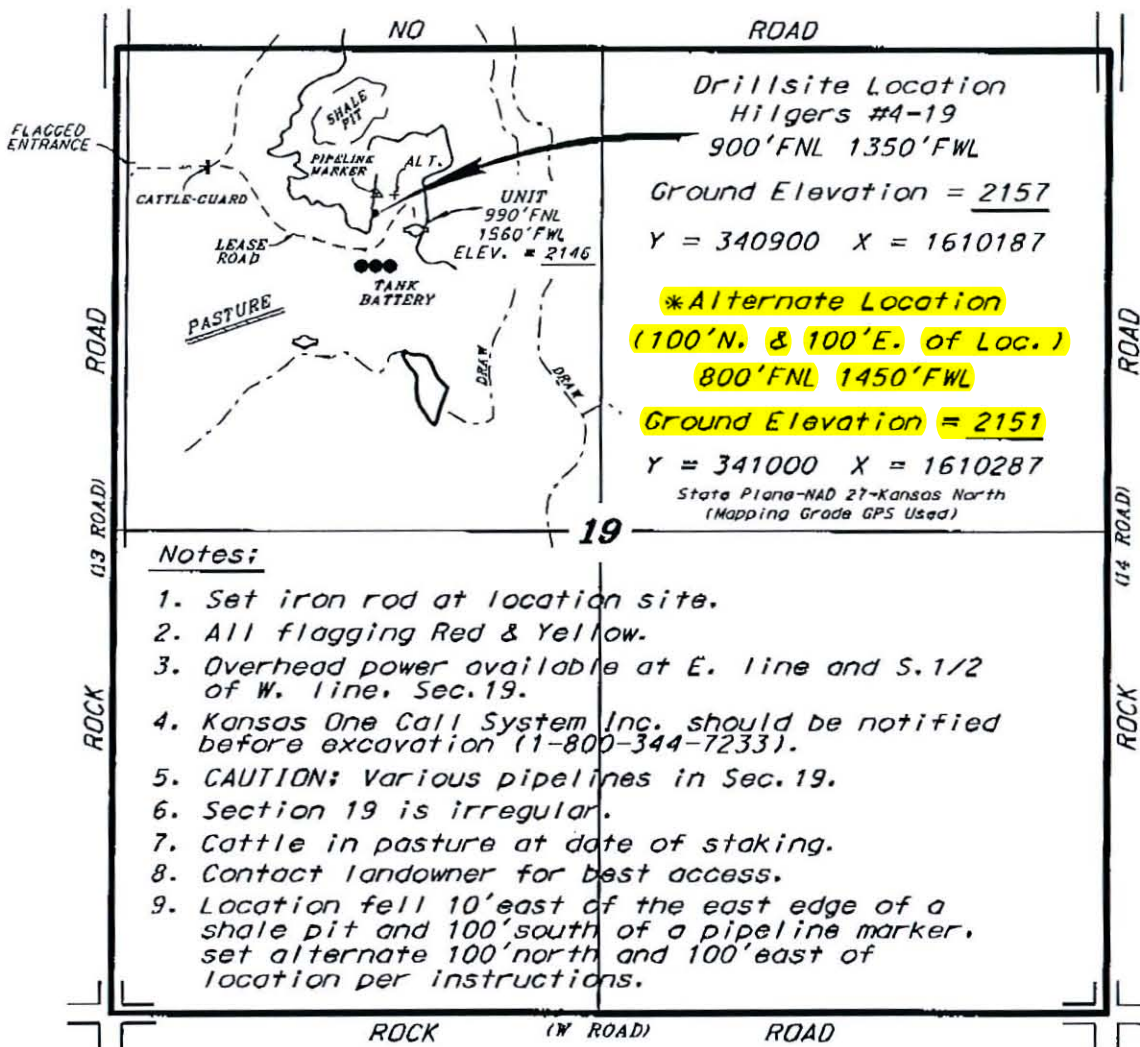 NO ROAD
FLAGGED
ENTRANCE
CATTLE-GUARD
SHALE
PIT
PIPELINE
MARKER
ALT.
UNIT
990'FNL
1560'FWL
ELEV. = 2146
LEASE
ROAD
TANK
BATTERY
PASTURE
DRAW
DRAW
Drillsite Location
Hilgers #4-19
900'FNL 1350'FWL
Ground Elevation = 2157
Y = 340900 X = 1610187
*Alternate Location
(100'N. & 100'E. of Loc.)
800'FNL 1450'FWL
Ground Elevation = 2151
Y = 341000 X = 1610287
State Plane-NAD 27-Kansas North
(Mapping Grade GPS Used)
19
ROCK (13 ROAD) ROAD
ROCK (14 ROAD) ROAD
Notes:
1. Set iron rod at location site.
2. All flagging Red & Yellow.
3. Overhead power available at E. line and S.1/2
of W. line, Sec.19.
4. Kansas One Call System Inc. should be notified
before excavation (1-800-344-7233).
5. CAUTION: Various pipelines in Sec.19.
6. Section 19 is irregular.
7. Cattle in pasture at date of staking.
8. Contact landowner for best access.
9. Location fell 10'east of the east edge of a
shale pit and 100'south of a pipeline marker.
set alternate 100'north and 100'east of
location per instructions.
ROCK (W ROAD) ROAD